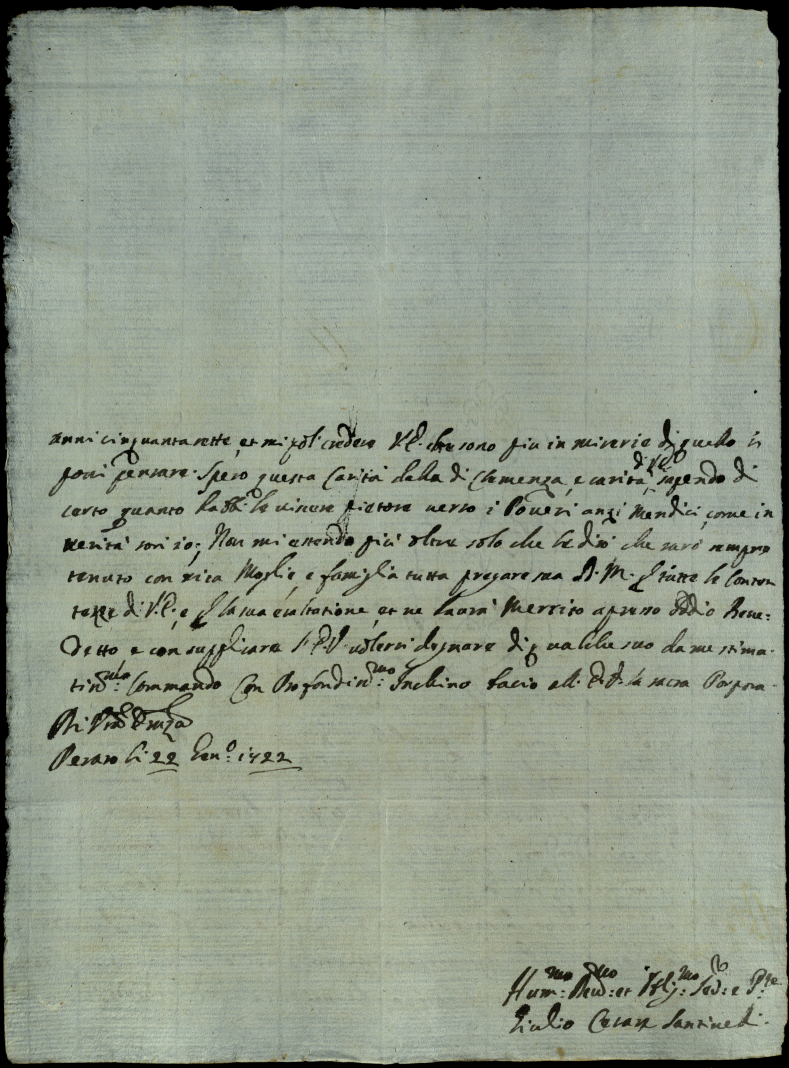 anni cinquantasette, et mi può credere V.E. che sono più in miserie di quello si
possi pensare. Spero questa Carità dalla di Clemenza, e carità di V.E. sapendo di
certo quanto habbi le viscere pietose verso i Poveri anzi Mendici, come in
verità son io; Non mi estendo più oltre solo che le dirò che sarò sempre
tenuto con mia Moglie, e famiglia tutta pregare sua D. M. per tutte le Conten
tezze di V.E.; e per la sua esaltatione, et ne haurà Merrito apresso Iddio Bene:
detto e con suppliciare V.E. volersi degnare di qualche suo da me stima
tiss:mo Commando Con Profondiss:mo Inchino bacio all' la sacra Porpora
Di Vra Emza
Pesaro li 22 Gen:o 1722
Hum:mo Dev:mo et Oblig:mo Ser:e
Giulio Cesare Santinelli